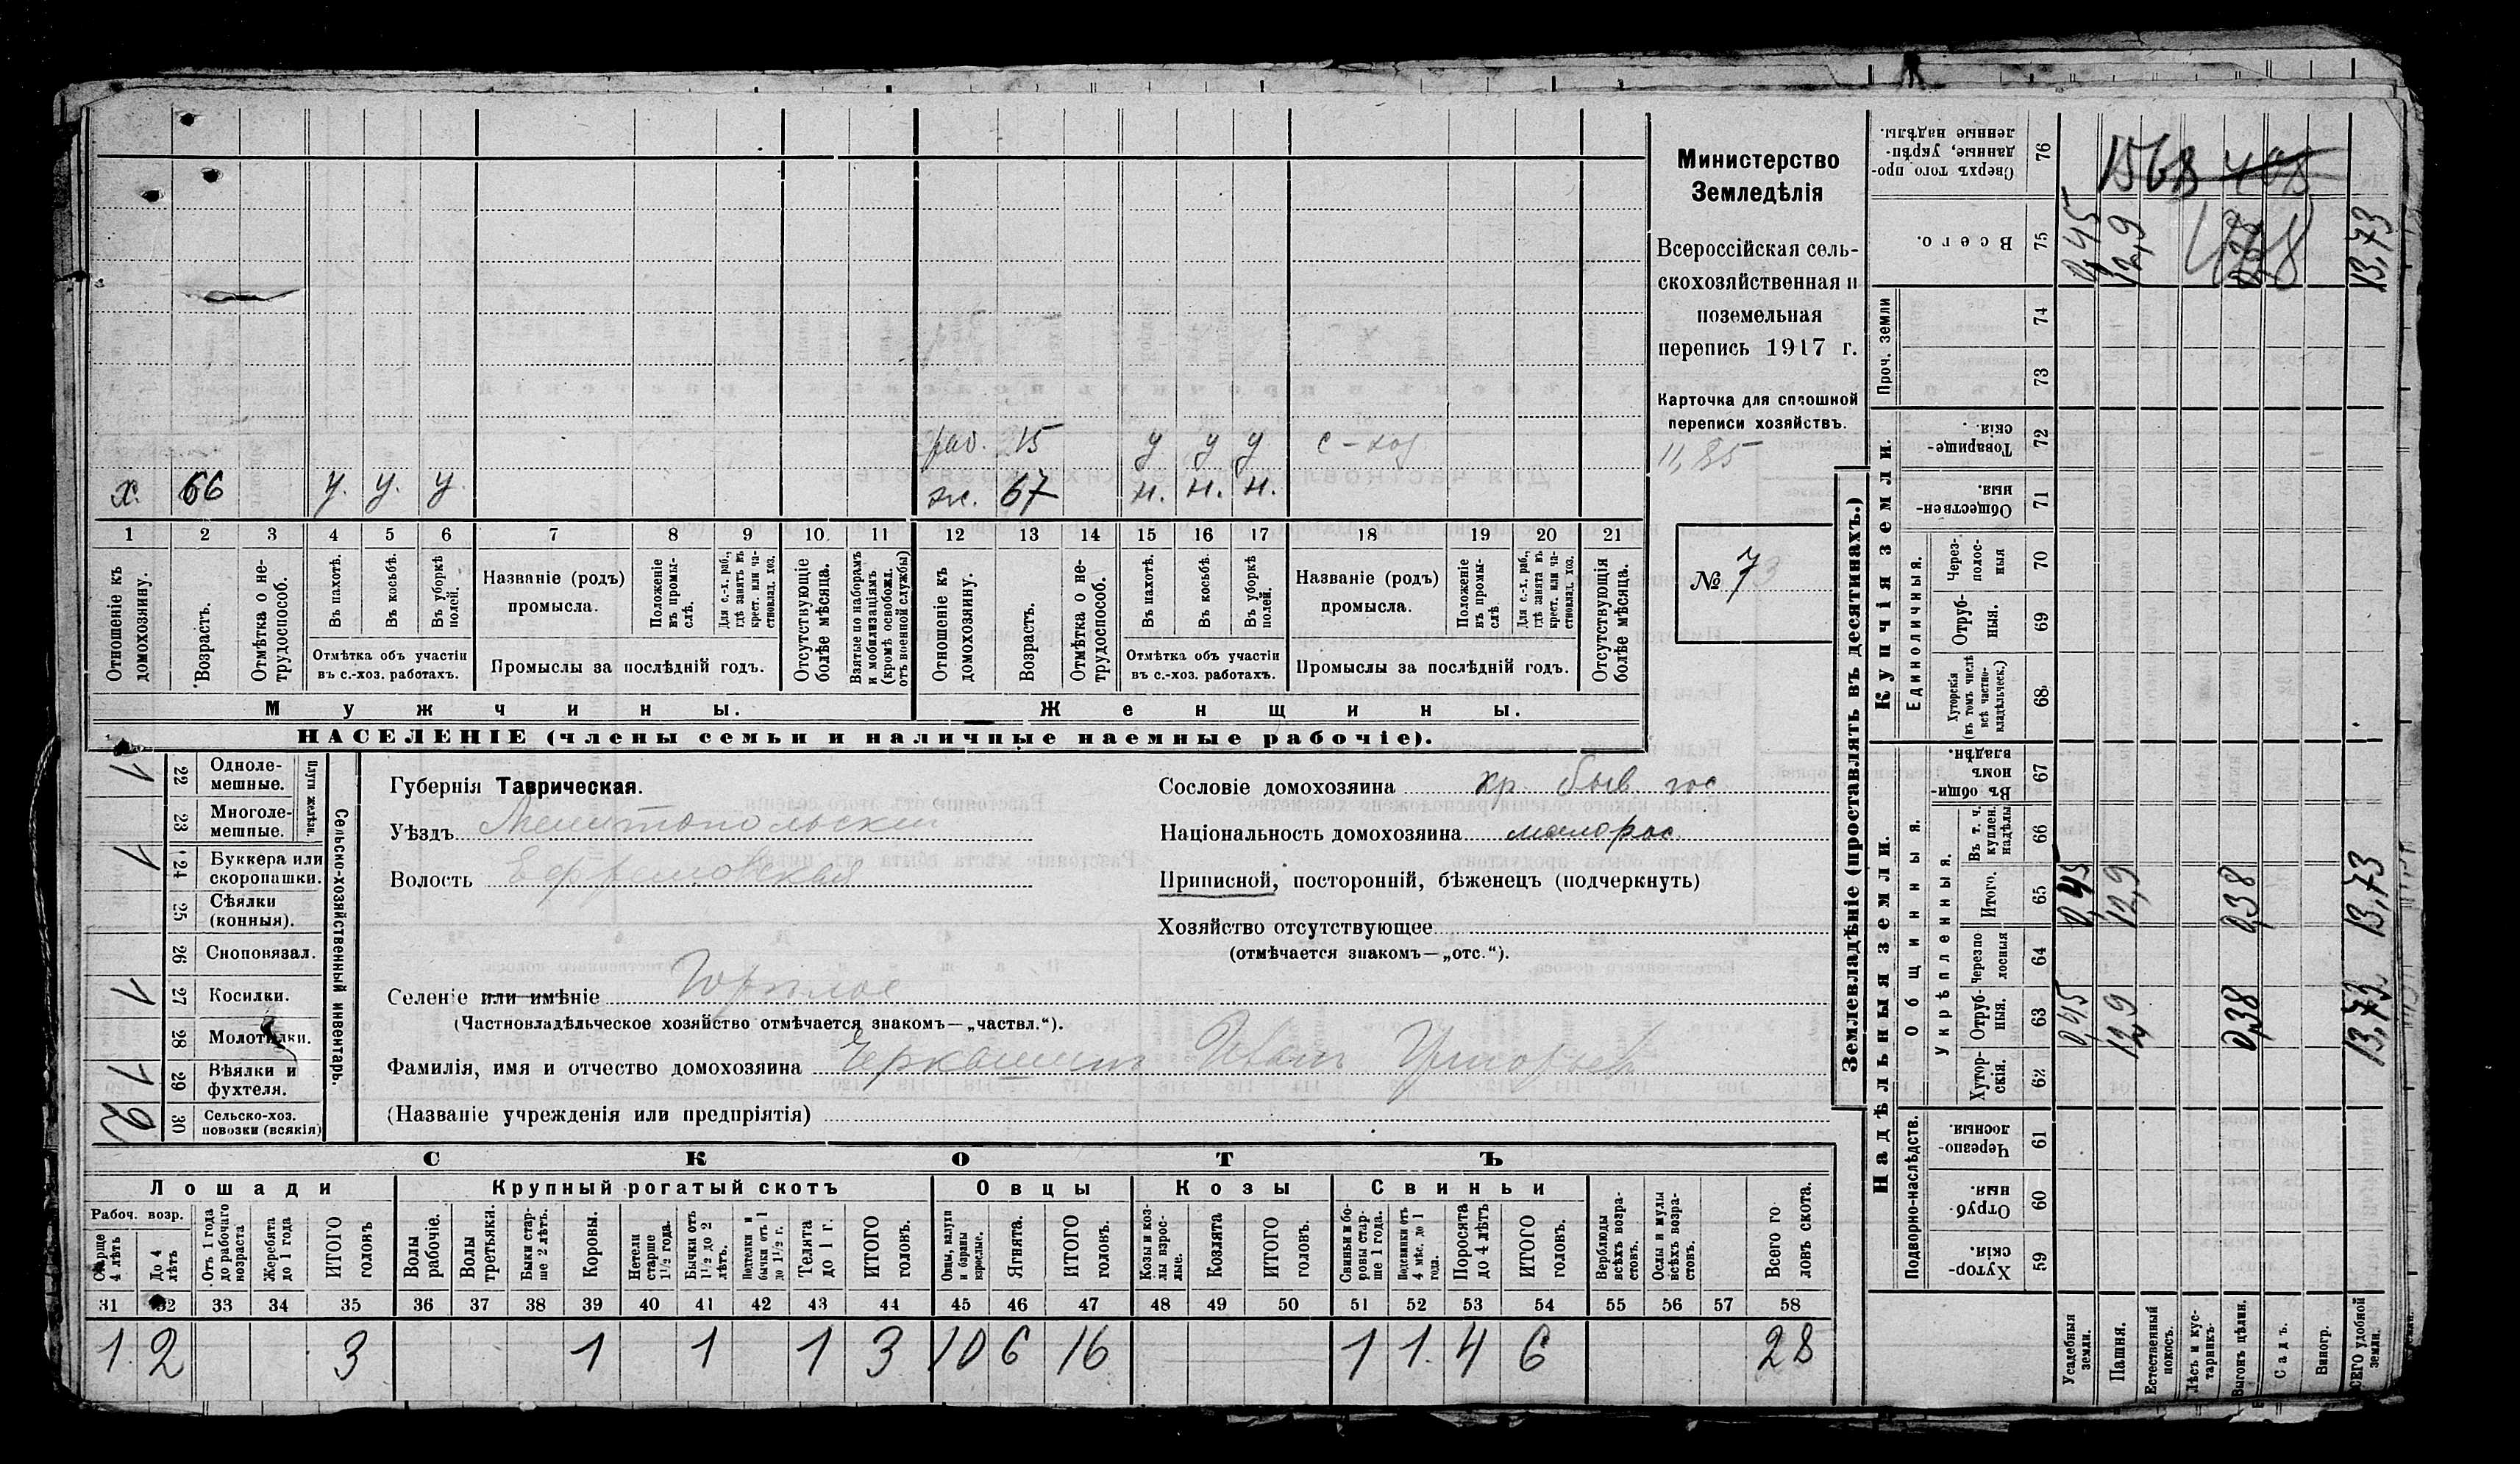 раб. 15 у у у с-хоз
х. 66 у. у. у. ж. 67 н. н. н.
1 2 3 4 5 6 7 8 9 10 11 12 13 14 15 16 17 18 19 20 21
Отношеніе къ домохозяину.
Возрастъ.
Отмѣтка о не-трудоспособ.
Въ пахотѣ.
Въ косьбѣ.
Въ уборкѣ полей.
Названіе (родъ) промысла.
Положеніе въ промы-слѣ.
Для с.-х. раб., гдѣ занятъ въ крест. или ча-стновлад. хоз.
Отсутствующіе болѣе мѣсяца.
Взятые по наборамъ и мобилизаціямъ (кромѣ освобожд. отъ военной службы)
Отношеніе къ домохозяину.
Возрастъ.
Отмѣтка о не-трудоспособ.
Въ пахотѣ.
Въ косьбѣ.
Въ уборкѣ полей.
Названіе (родъ) промысла.
Положеніе въ промы-слѣ.
Для с.-х. раб., гдѣ занята въ крест. или ча-стновлад. хоз.
Отсутствующія болѣе мѣсяца.
Отмѣтка объ участіи въ с.-хоз. работахъ.
Промыслы за послѣдній годъ.
Отмѣтка объ участіи въ с.-хоз. работахъ.
Промыслы за послѣдній годъ.
Мужчины.
Женщины.
НАСЕЛЕНІЕ (члены семьи и наличные наемные рабочіе).
Министерство
Земледѣлія
Всероссійская сель-
скохозяйственная и
поземельная
перепись 1917 г.
Карточка для сплошной
переписи хозяйствъ.
11,85
№ 73
Сельско-хозяйственный инвентарь.
Плуги желѣзн.
1 22 Одноле-мешные.
23 Многоле-мешные.
1 24 Буккера или скоропашки.
25 Сѣялки (конныя).
26 Сноповязал.
1 27 Косилки.
28 Молотилки.
1 29 Вѣялки и фухтеля.
2 30 Сельско-хоз. повозки (всякія)
Губернія Таврическая.
Уѣздъ Мелитопольскій
Волость Ефремовская
Сословіе домохозяина кр. быв. гос.
Національность домохозяина малорос.
Приписной, посторонній, бѣженецъ (подчеркнуть)
Хозяйство отсутствующее
(отмѣчается знакомъ—„отс.“).
Селеніе или имѣніе
(Частновладѣльческое хозяйство отмѣчается знакомъ—„частвл.“).
Фамилія, имя и отчество домохозяина Черкашинъ Иванъ Григорьев
(Названіе учрежденія или предпріятія)
СКОТЪ
Лошади Крупный рогатый скотъ Овцы Козы Свиньи
Рабоч. возр.
Старше 4 лѣтъ
До 4 лѣтъ
Отъ 1 года до рабочаго возраста
Жеребята до 1 года
ИТОГО головъ
Волы рабочіе.
Волы третьяки.
Быки стар-ше 2 лѣтъ.
Коровы.
Нетели старше 1½ года.
Бычки отъ 1½ до 2 лѣтъ.
бычки отъ 1 до 1½ г.
Телята до 1 г.
ИТОГО головъ.
Овцы, валухи и бараны взрослые.
Ягнята.
ИТОГО головъ.
Козы и коз-лы взрос-лые.
Козлята
ИТОГО головъ.
Свиньи и бо-ровы стар-ше 1 года.
Подсвинки отъ 4 мѣс. до 1 года.
Поросята до 4 лѣтъ
ИТОГО головъ.
Верблюды всѣхъ возра-стовъ.
Ослы и мулы всѣхъ возра-стовъ.
Всего го-ловъ скота.
31 32 33 34 35 36 37 38 39 40 41 42 43 44 45 46 47 48 49 50 51 52 53 54 55 56 57 58
1. 2 3 1 1 1 3 10 6 16 1 1. 4 6 28
Землевладѣніе (проставлять въ десятинахъ.)
Надѣльныя земли.
Купчія земли.
Проч. земли
Подворно-наслѣдств.
Общинныя.
Укрѣпленныя.
Единоличныя.
Сверхъ того про-данные, укрѣп-ленные надѣлы. 76
Всего. 75 0,45 12,9 13,73
74
73
Товарище-скія. 72
Обществен-ныя. 71
Через-полос-ныя 70
Отруб-ныя. 69
Хуторскія (въ томъ числѣ всѣ частно-владѣльческ.) 68
Въ общи-номъ владѣн. 67
Въ т. ч. куплен. надѣлы 66
Итого. 65 0,45 12,9 0,38 13,73
Черезпо лосныя 64
Отруб-ныя. 63 0,45 12,9 0,38 13,73
Хутор-скія. 62
Черезпо-лосныя. 61
Отруб-ныя. 60
Хутор-скія. 59
Усадебныя земли.
Пашня.
Естественный покосъ.
Лѣсъ и кус-тарникъ.
Выгонъ цѣлин.
Садъ.
Виногр.
ВСЕГО удобной земли.